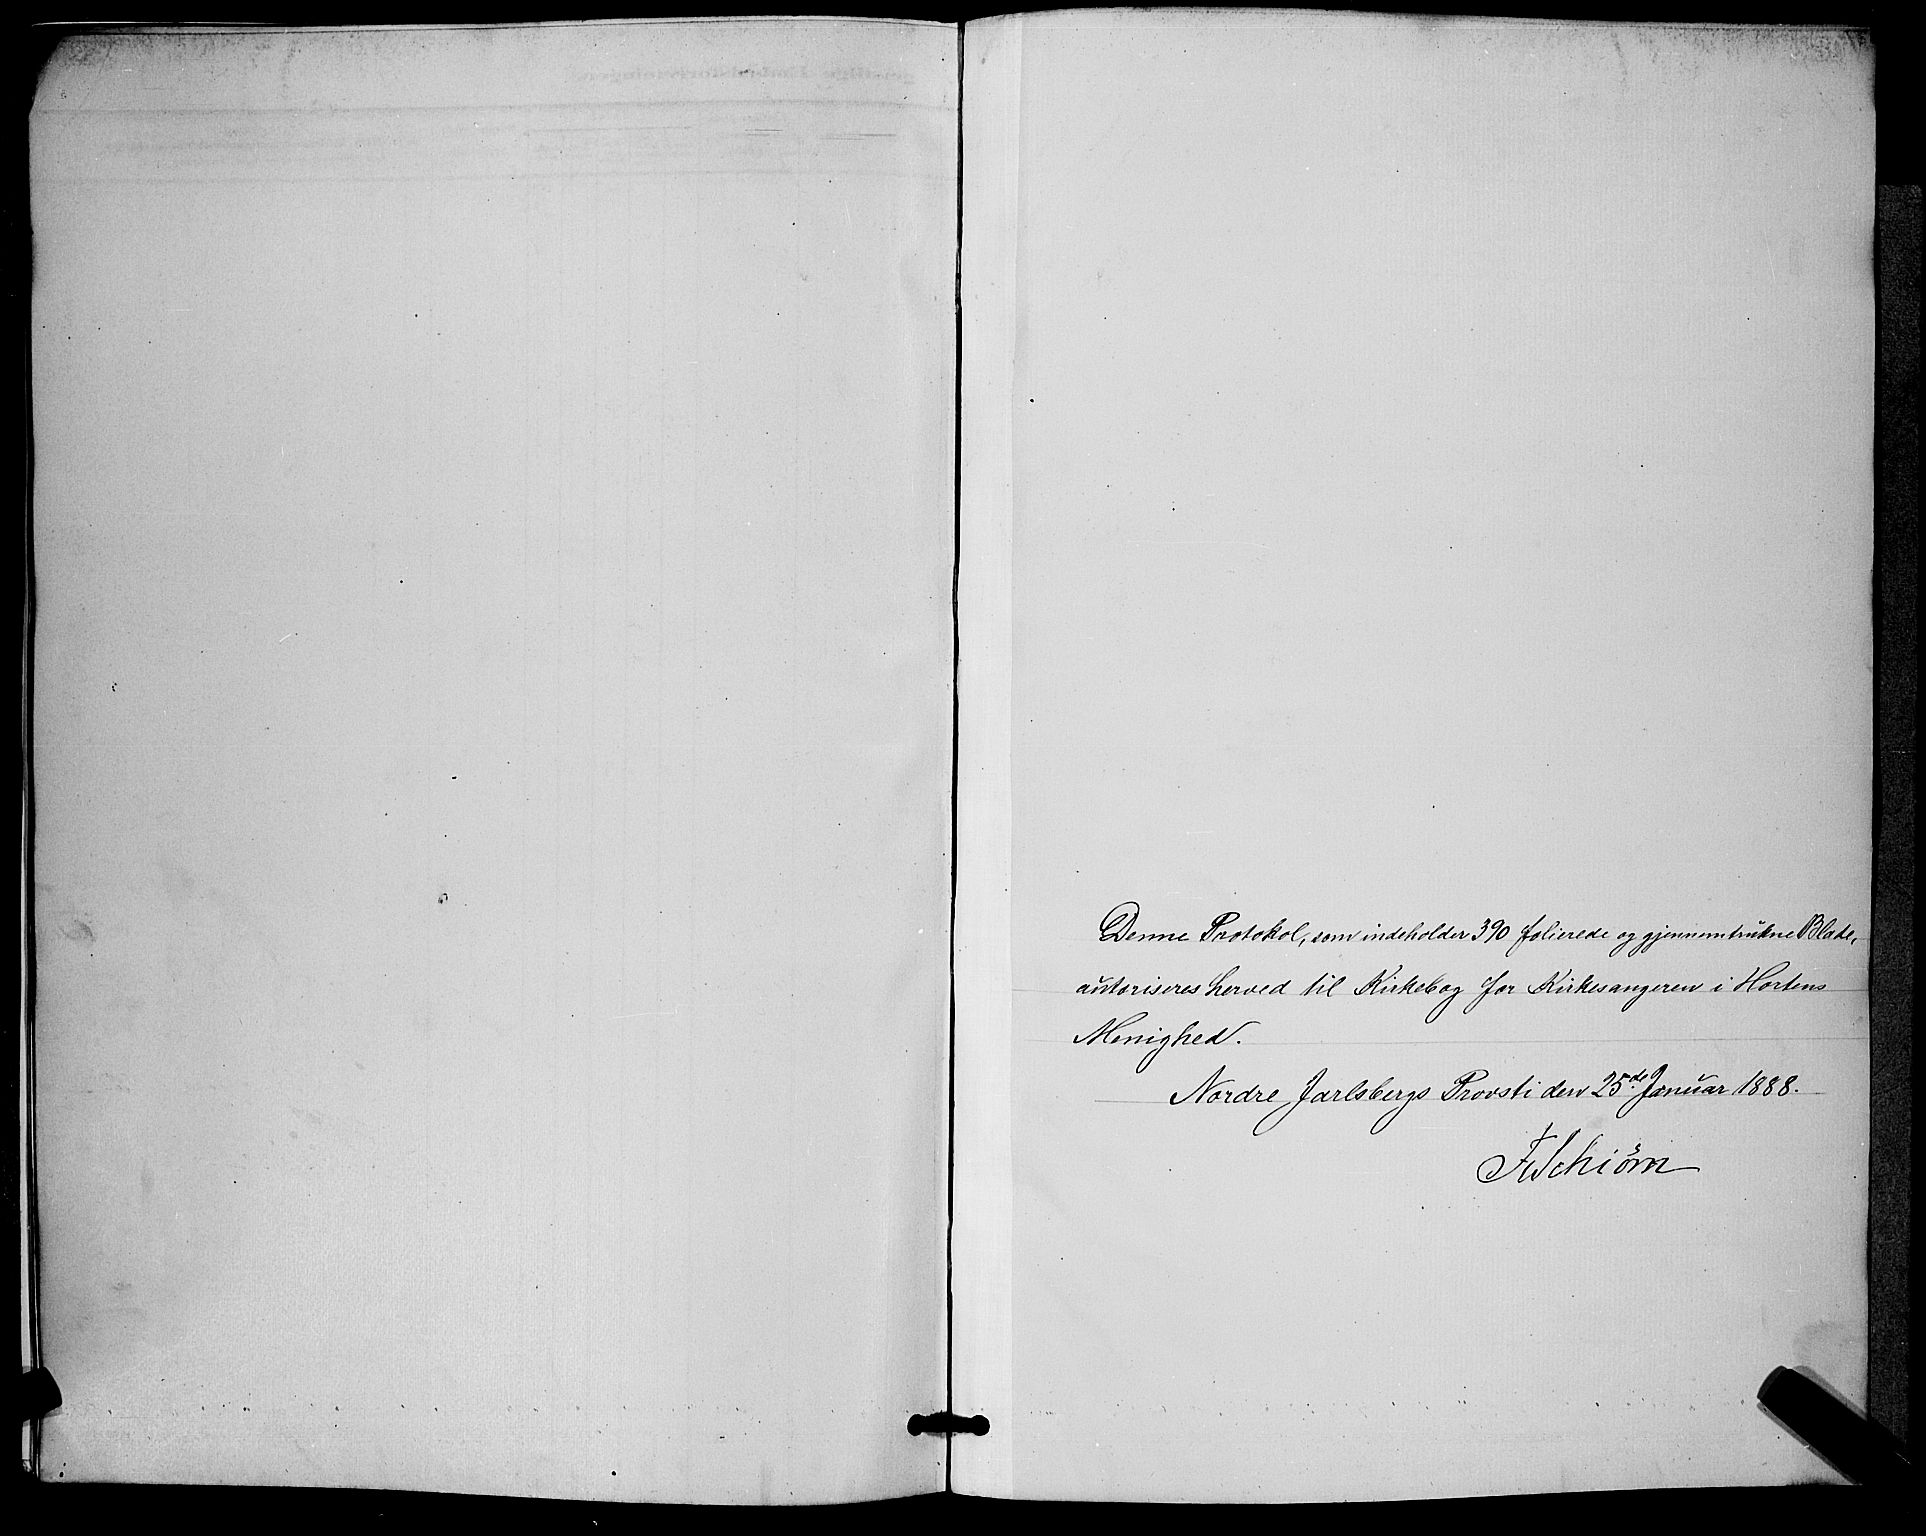 Denne Protokol, som indeholder 390 folierede og gjennemtrukne Blade,
autoriseres herved til Kirkebog for Kirkesangeren i Hortens
Menighed.
Nordre Jarlsbergs Provsti den 25de Januar 1888.
F Schiørn